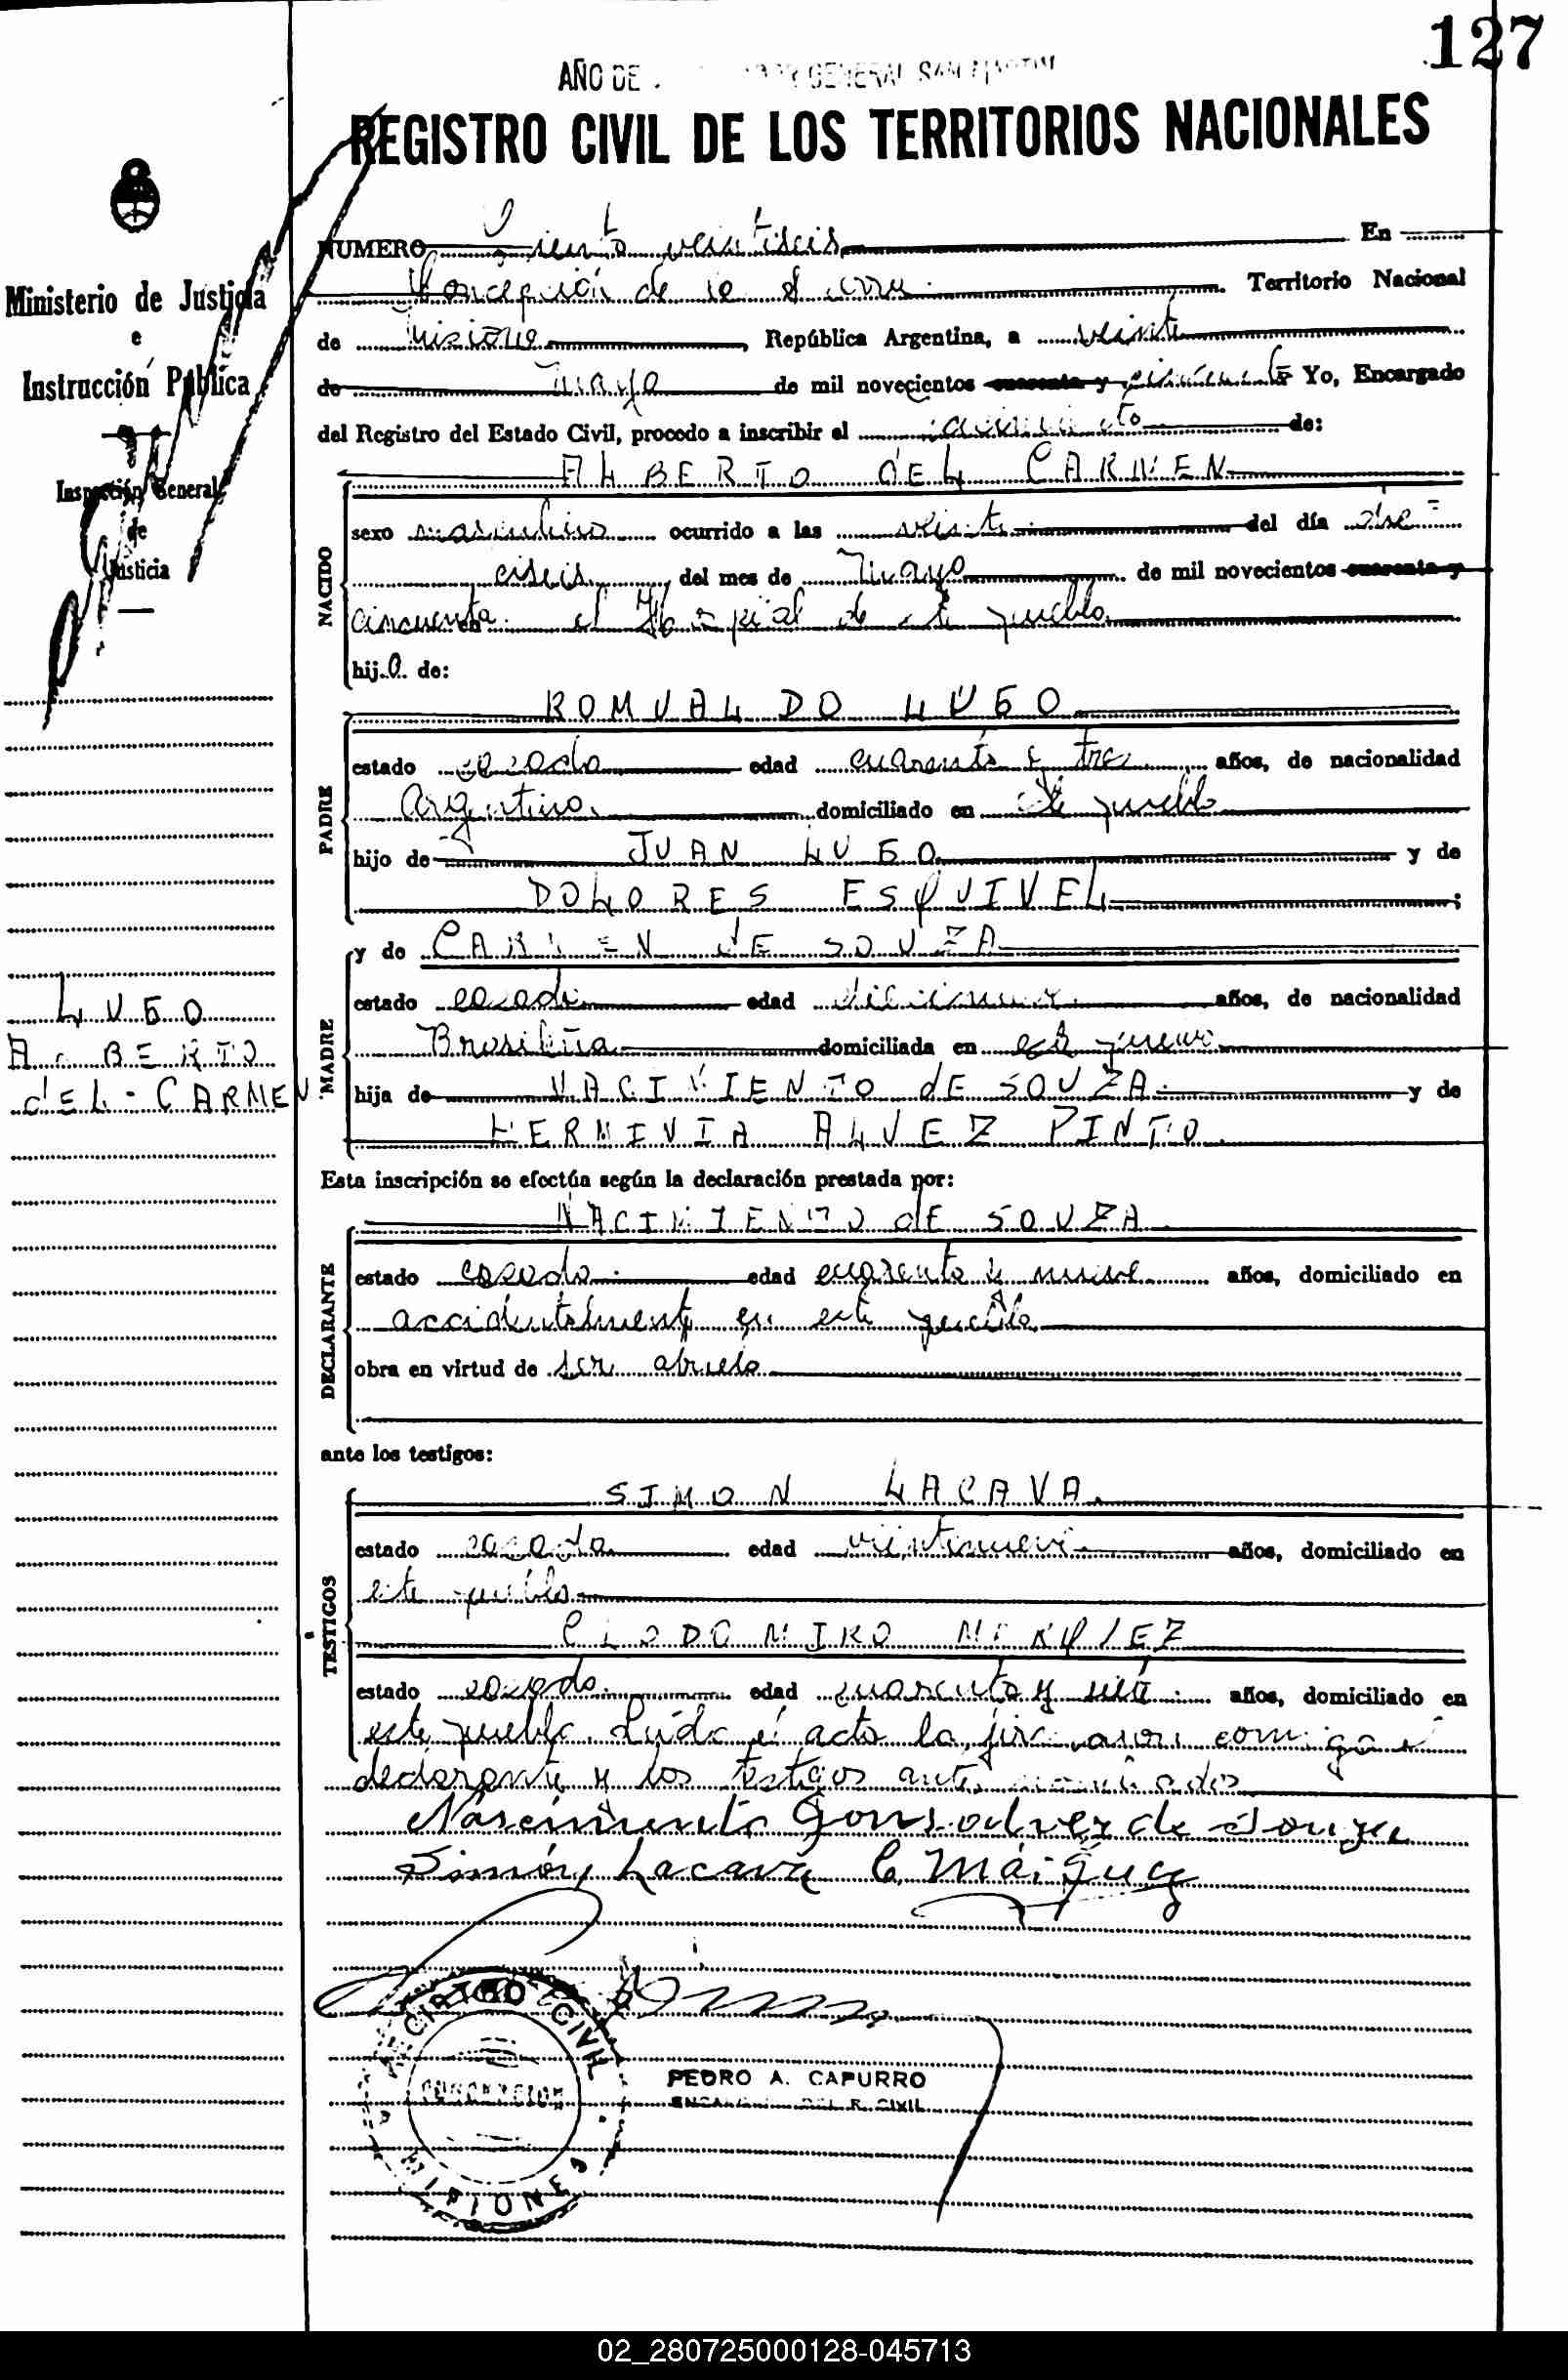 127
AÑO DE GENERAL SAN MARTIN
REGISTRO CIVIL DE LOS TERRITORIOS NACIONALES
Ministerio de Justicia
e
Instrucción Pública
Inspección General
de
Justicia
LUGO
ALBERTO
dEL - CARMEN
NUMERO Ciento veintiseis En
Concepción de la Sierra Territorio Nacional
de Misiones, República Argentina, a veinte
de Mayo de mil novecientos cuarenta y cincuenta Yo, Encargado
del Registro del Estado Civil, procedo a inscribir el nacimiento de:
NACIDO
ALBERTO dEL CARMEN
sexo masculino ocurrido a las veinte del día diez
ciseis del mes de Mayo de mil novecientos cuarenta y
cincuenta en el Hospital de este pueblo
hijo de:
PADRE
ROMUALDO LUGO
estado casado edad cuarenta y tres años, de nacionalidad
Argentino domiciliado en este pueblo
hijo de JUAN LUGO y de
DOLORES ESQUIVEL;
MADRE
y de CARMEN dE SOUZA
estado casada edad años, de nacionalidad
Brasileña domiciliada en este pueblo
hija de NACIMIENTO dE SOUZA y de
HERMINIA ALVEZ PINTO
Esta inscripción se efectúa según la declaración prestada por:
DECLARANTE
NACIMIENTO dE SOUZA
estado casado edad cuarenta y nueve años, domiciliado en
accidentalmente en este pueblo
obra en virtud de ser abuelo
ante los testigos:
TESTIGOS
SIMON LACAVA
estado casado edad veintinueve años, domiciliado en
este pueblo
CLODOMIRO MARQUEZ
estado casado edad cuarenta y siete años, domiciliado en
este pueblo. Leida el acta la firmaron conmigo el
declarante y los testigos ante nominados
Nascimento Gonsalvez de Souza
Simón Lacava C. Márquez
REGISTRO CIVIL
CONCEPCION
MISIONES
PEDRO A. CAPURRO
ENCARGADO DEL R. CIVIL
02_280725000128-045713